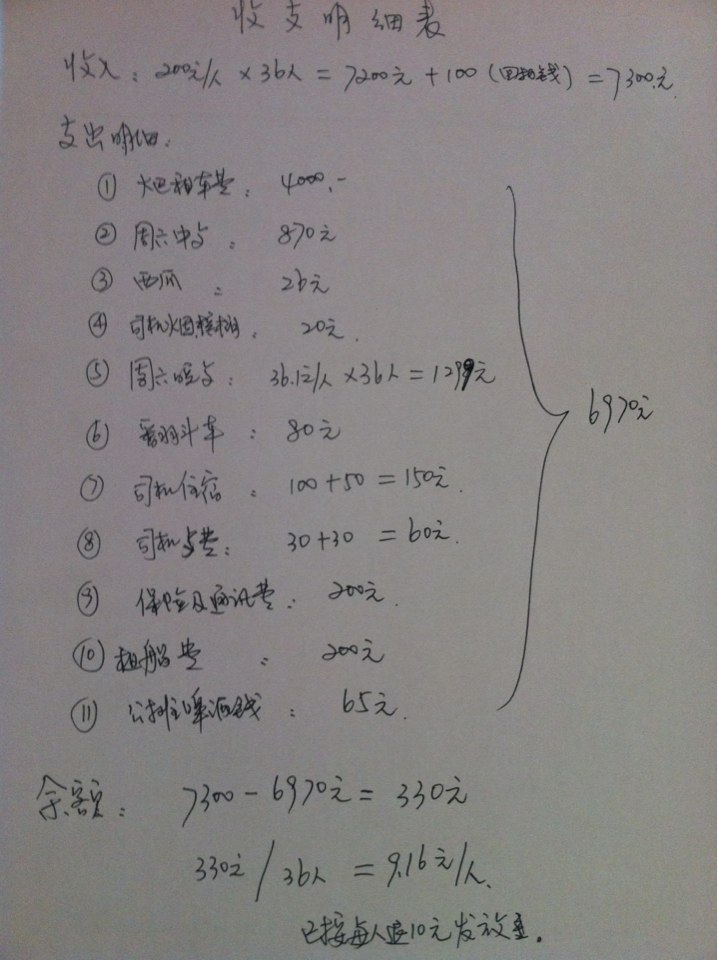 收支明细表
收入：200元/人 × 36人 = 7200元 + 100（田租钱） = 7300元
支出明细：
① 大巴租车费：4000.-
② 周六中与：870元
③ 西瓜：26元
④ 司机火因槟榔：20元.
⑤ 周六晚与：36.1元/人 × 36人 = 1299元
⑥ 翻斗车：80元
⑦ 司机住宿：100 + 50 = 150元.
⑧ 司机与费：30 + 30 = 60元.
⑨ 保险及通讯费：200元.
⑩ 租船费：200元
⑪ 啤酒钱：65元.
6970元
余额：7300 - 6970元 = 330元
330元 / 36人 = 9.16元/人.
已按每人退10元发放至.